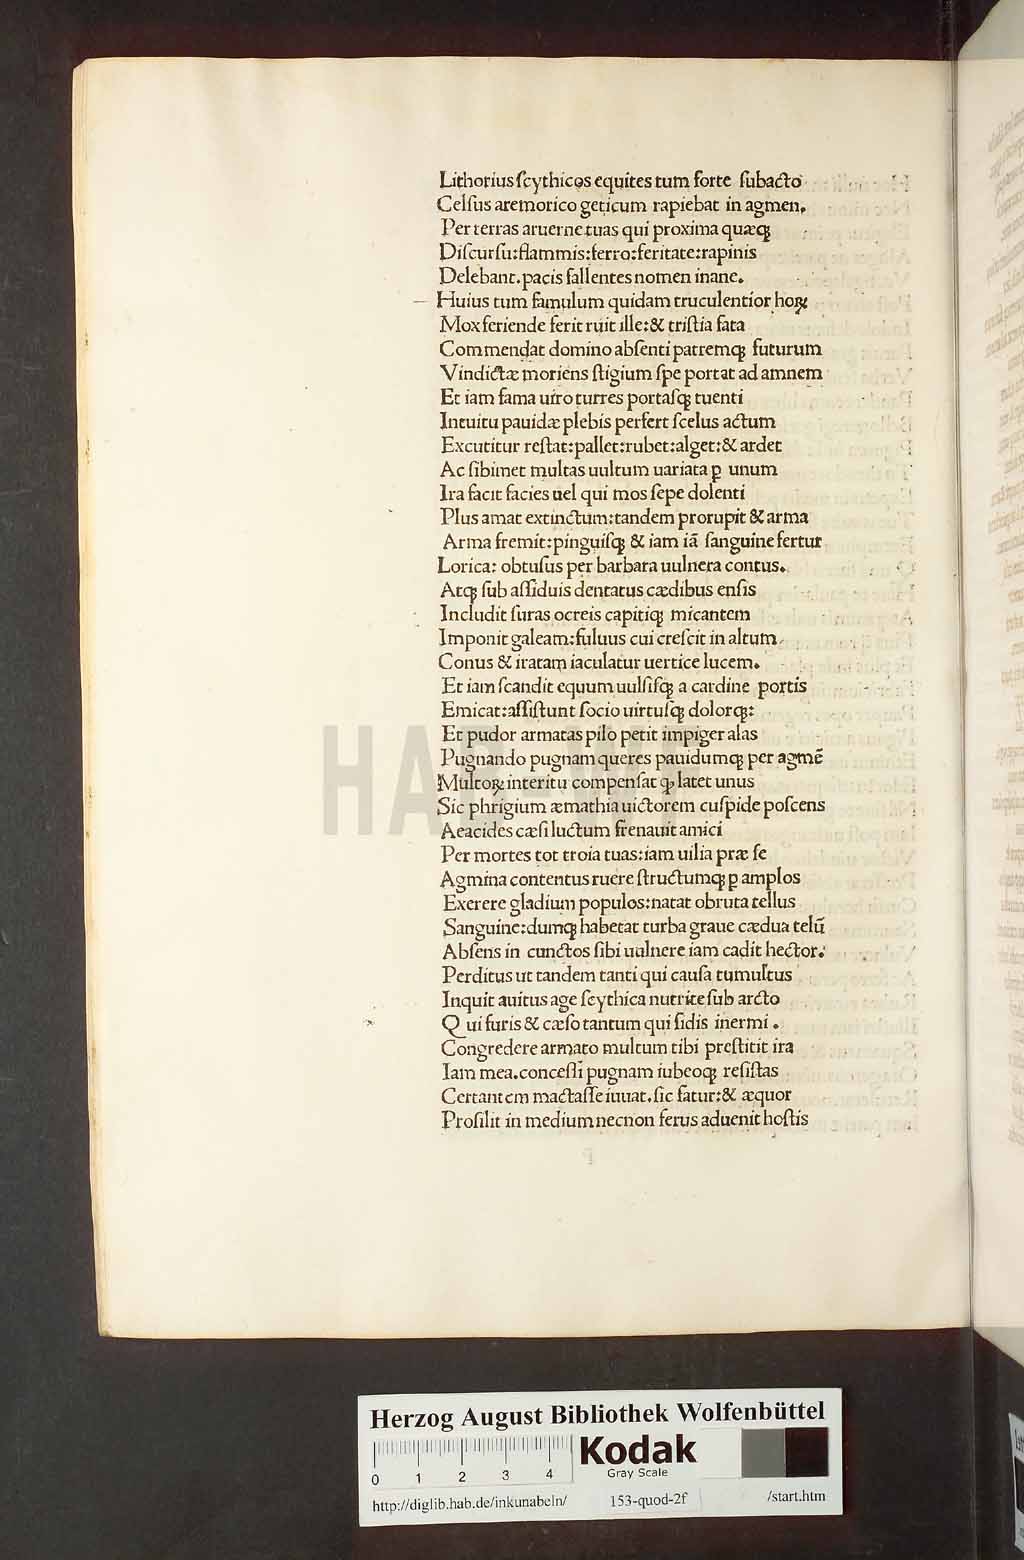 Lithorius ſcythicos equites tum forte ſubacto
Celſus aremorico geticum rapiebat in agmen.
Per terras aruerne tuas qui proxima quæqꝫ
Diſcurſu:flammis:ferro:feritate:rapinis
Delebant.pacis fallentes nomen inane.
Huius tum famulum quidam truculentior hoꝝ
Mox feriende ferit ruit ille:& triſtia fata
Commendat domino abſenti patremqꝫ futurum
Vindictæ moriens ſtigium ſpe portat ad amnem
Et iam fama uiro turres portaſqꝫ tuenti
Intuitu pauidæ plebis perfert ſcelus actum
Excutitur reſtat:pallet:rubet:alget:& ardet
Ac ſibimet multas uultum uariata ꝑ unum
Ira facit facies uel qui mos ſepe dolenti
Plus amat extinctum:tandem prorupit & arma
Arma fremit:pinguiſqꝫ & iam iā ſanguine fertur
Lorica: obtuſus per barbara uulnera contus.
Atqꝫ ſub aſſiduis dentatus cædibus enſis
Includit ſuras ocreis capitiqꝫ micantem
Imponit galeam:fuluus cui creſcit in altum
Conus & iratam iaculatur uertice lucem.
Et iam ſcandit equum uulſiſqꝫ a cardine portis
Emicat:aſſiſtunt ſocio uirtuſqꝫ dolorqꝫ:
Et pudor armatas pilo petit impiger alas
Pugnando pugnam queres pauidumqꝫ per agmē
Multoꝝ interitu compenſat ꝙ latet unus
Sic phrigium æmathia uictorem cuſpide poſcens
Aeacides cæſi luctum frenauit amici
Per mortes tot troia tuas:iam uilia præ ſe
Agmina contentus ruere ſtructumqꝫ ꝑ amplos
Exerere gladium populos:natat obruta tellus
Sanguine:dumqꝫ habetat turba graue cædua telū
Abſens in cunctos ſibi uulnere iam cadit hector.
Perditus ut tandem tanti qui cauſa tumultus
Inquit auitus age ſcythica nutrite ſub arcto
Qui furis & cæſo tantum qui fidis inermi .
Congredere armato multum tibi preſtitit ira
Iam mea.conceſſi pugnam iubeoqꝫ reſiſtas
Certantem mactaſſe iuuat.ſic fatur:& æquor
Profilit in medium necnon ferus aduenit hoſtis
HAB-WF
Herzog August Bibliothek Wolfenbüttel
Kodak
Gray Scale
0 1 2 3 4
http://diglib.hab.de/inkunabeln/ 153-quod-2f /start.htm